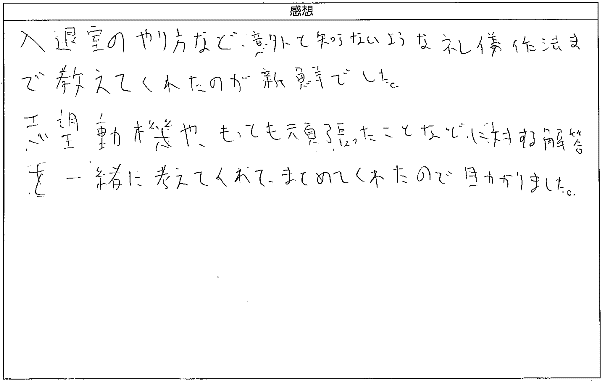 感想
入退室のやり方など、意外と知らないような礼儀作法ま
で教えてくれたのが新鮮でした。
志望動機や、もっとも頑張ったことなどに対する解答
を一緒に考えてくれて、まとめてくれたので助かりました。